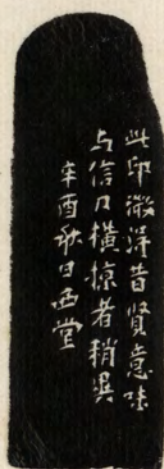 此印澂得昔賢意味
与信刀橫掠者稍異
辛酉秋日西堂